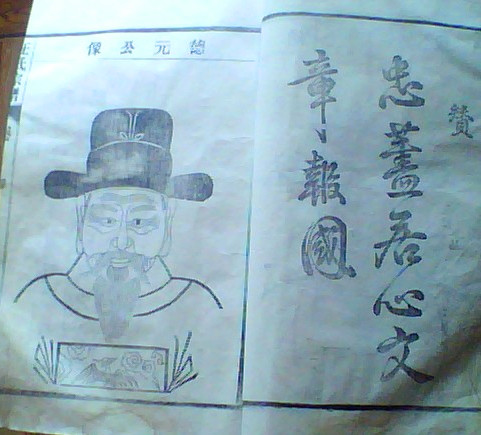 贊
忠藎居心文
章報國
德元公像